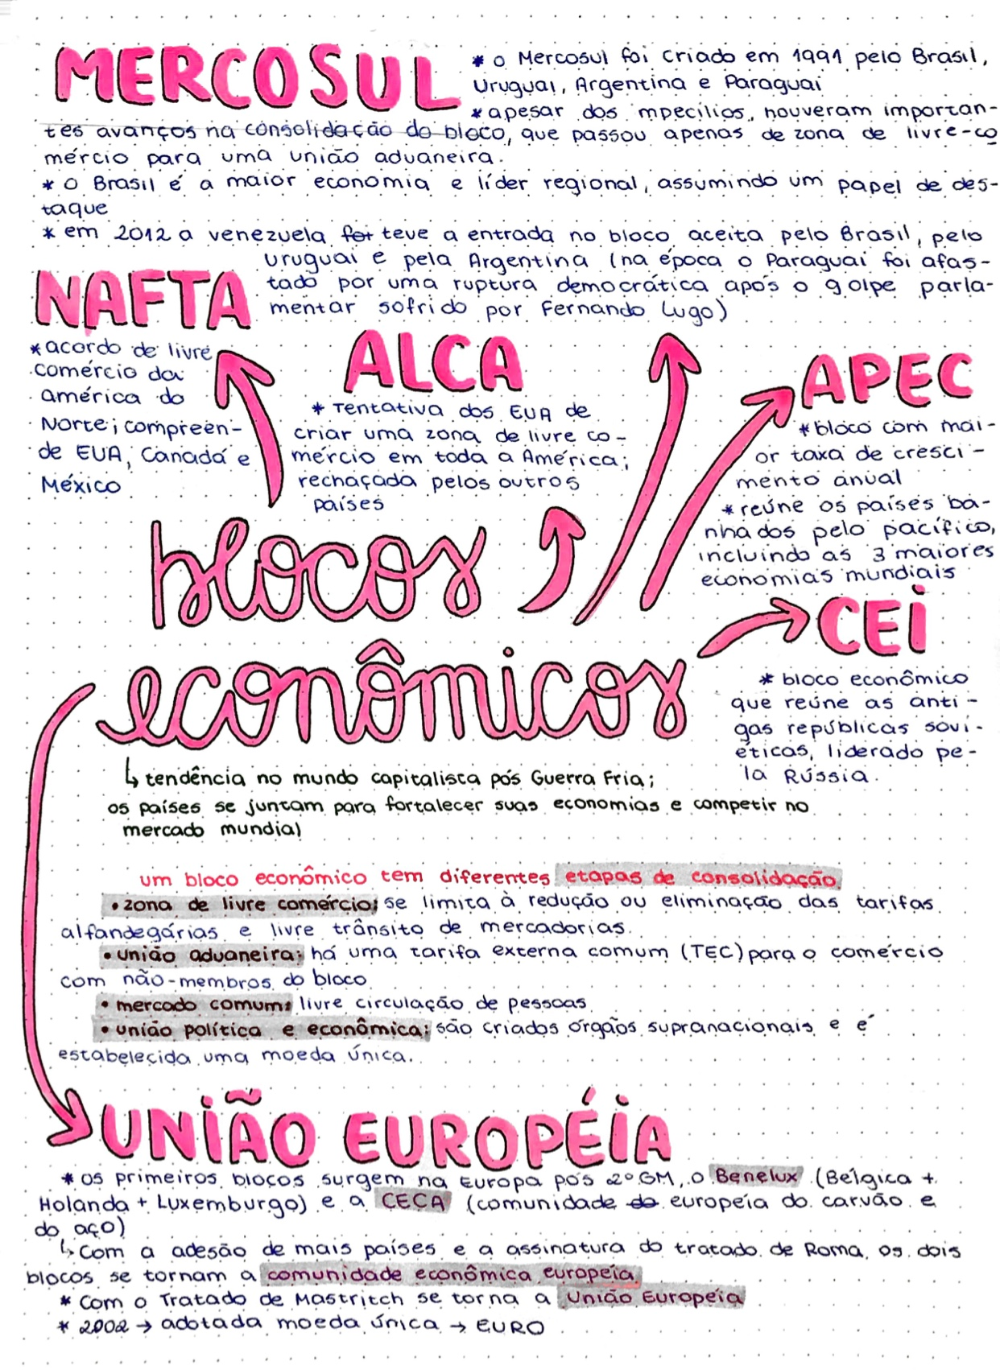 MERCOSUL
* o Mercosul foi criado em 1991 pelo Brasil,
Uruguai, Argentina e Paraguai
* apesar dos mpecílios, houveram importan-
tes avanços na consolidação do bloco, que passou apenas de zona de livre-co
mércio para uma união aduaneira.
* o Brasil é a maior economia e líder regional, assumindo um papel de des-
taque
* em 2012 a venezuela foi teve a entrada no bloco aceita pelo Brasil, pelo
uruguai e pela Argentina (na época o Paraguai foi afas-
tado por uma ruptura democrática após o golpe parla-
mentar sofrido por Fernando Lugo)
NAFTA
* acordo de livre
comércio da
américa do
Norte; compreen-
de EUA, Canadá e
México
ALCA
* Tentativa dos EUA de
criar uma zona de livre co-
mércio em toda a América;
rechaçada pelos outros
países
APEC
* bloco com mai-
or taxa de cresci-
mento anual
* reúne os países ba-
nhados pelo pacífico,
incluindo as 3 maiores
economias mundiais
blocos
econômicos
CEI
* bloco econômico
que reúne as anti-
gas repúblicas sovi-
éticas, liderado pe-
la Rússia.
↳ tendência no mundo capitalista pós Guerra Fria;
os países se juntam para fortalecer suas economias e competir no
mercado mundial
um bloco econômico tem diferentes etapas de consolidação
• zona de livre comércio; se limita à redução ou eliminação das tarifas
alfandegárias e livre trânsito de mercadorias.
• união aduaneira; há uma tarifa externa comum (TEC) para o comércio
com não-membros do bloco
• mercado comum; livre circulação de pessoas
• união política e econômica; são criados órgãos supranacionais e é
estabelecida uma moeda única.
UNIÃO EUROPÉIA
* os primeiros blocos surgem na Europa pós 2º GM, o Benelux (Bélgica +
Holanda + Luxemburgo) e a CECA (comunidade do europeia do carvão e
do aço)
↳ Com a adesão de mais países e a assinatura do tratado de Roma, os dois
blocos se tornam a comunidade econômica europeia
* Com o Tratado de Mastritch se torna a União Europeia
* 2002 → adotada moeda única → EURO